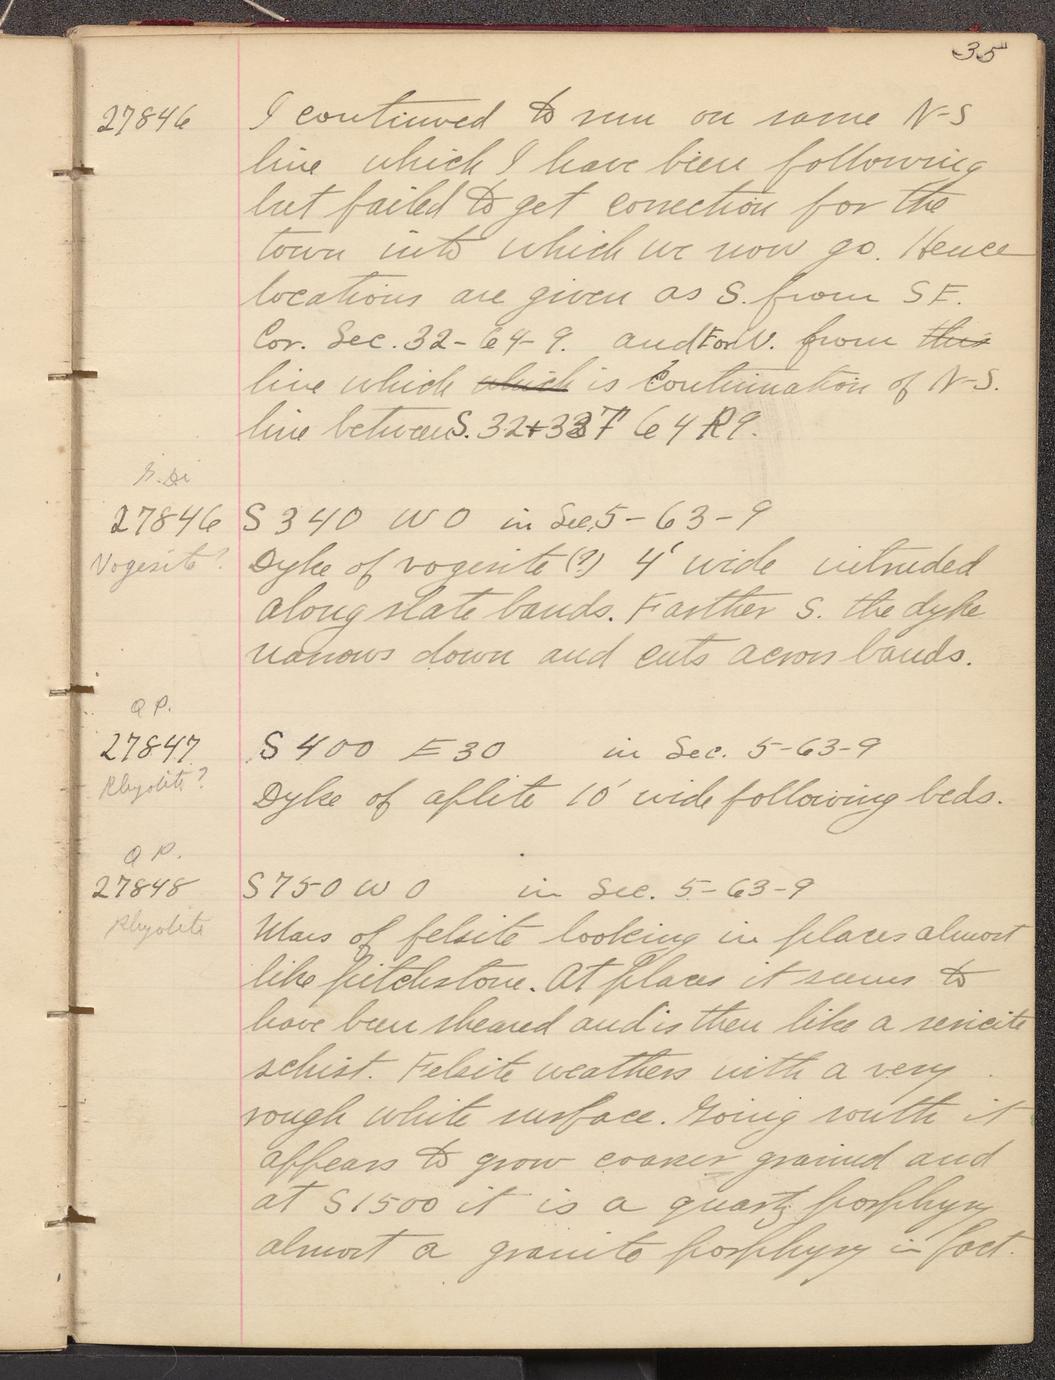 35
27846 I continued to run on same N-S
line which I have been following
but failed to get correction for the
town into which we now go. Hence
locations are given as S. from SE.
Cor. Sec. 32-64-9. and E or W. from this
line which which is continuation of N-S.
line between S. 32+33 T 64 R9.
27846 S 340 W 0 in Sec. 5-63-9
Vogesite? Dyke of vogesite (?) 4' wide intruded
along slate bands. Farther S. the dyke
narrows down and cuts across bands.
Q P.
27847 S 400 E 30 in Sec. 5-63-9
Rhyolite? Dyke of aplite 10' wide following beds.
Q P.
27848 S 750 W 0 in Sec. 5-63-9
Rhyolite Mass of felsite looking in places almost
like pitchstone. At places it seems to
have been sheared and is then like a sericite
schist. Felsite weathers with a very
rough white surface. Going south it
appears to grow coarser grained and
at S 1500 it is a quartz porphyry
almost a granite porphyry in fact.